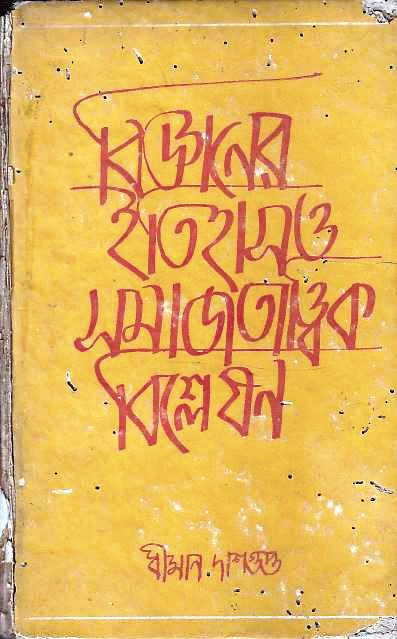 বিজ্ঞানের
ইতিহাস ও
সমাজতাত্ত্বিক
বিশ্লেষণ
ধীমান দাশগুপ্ত